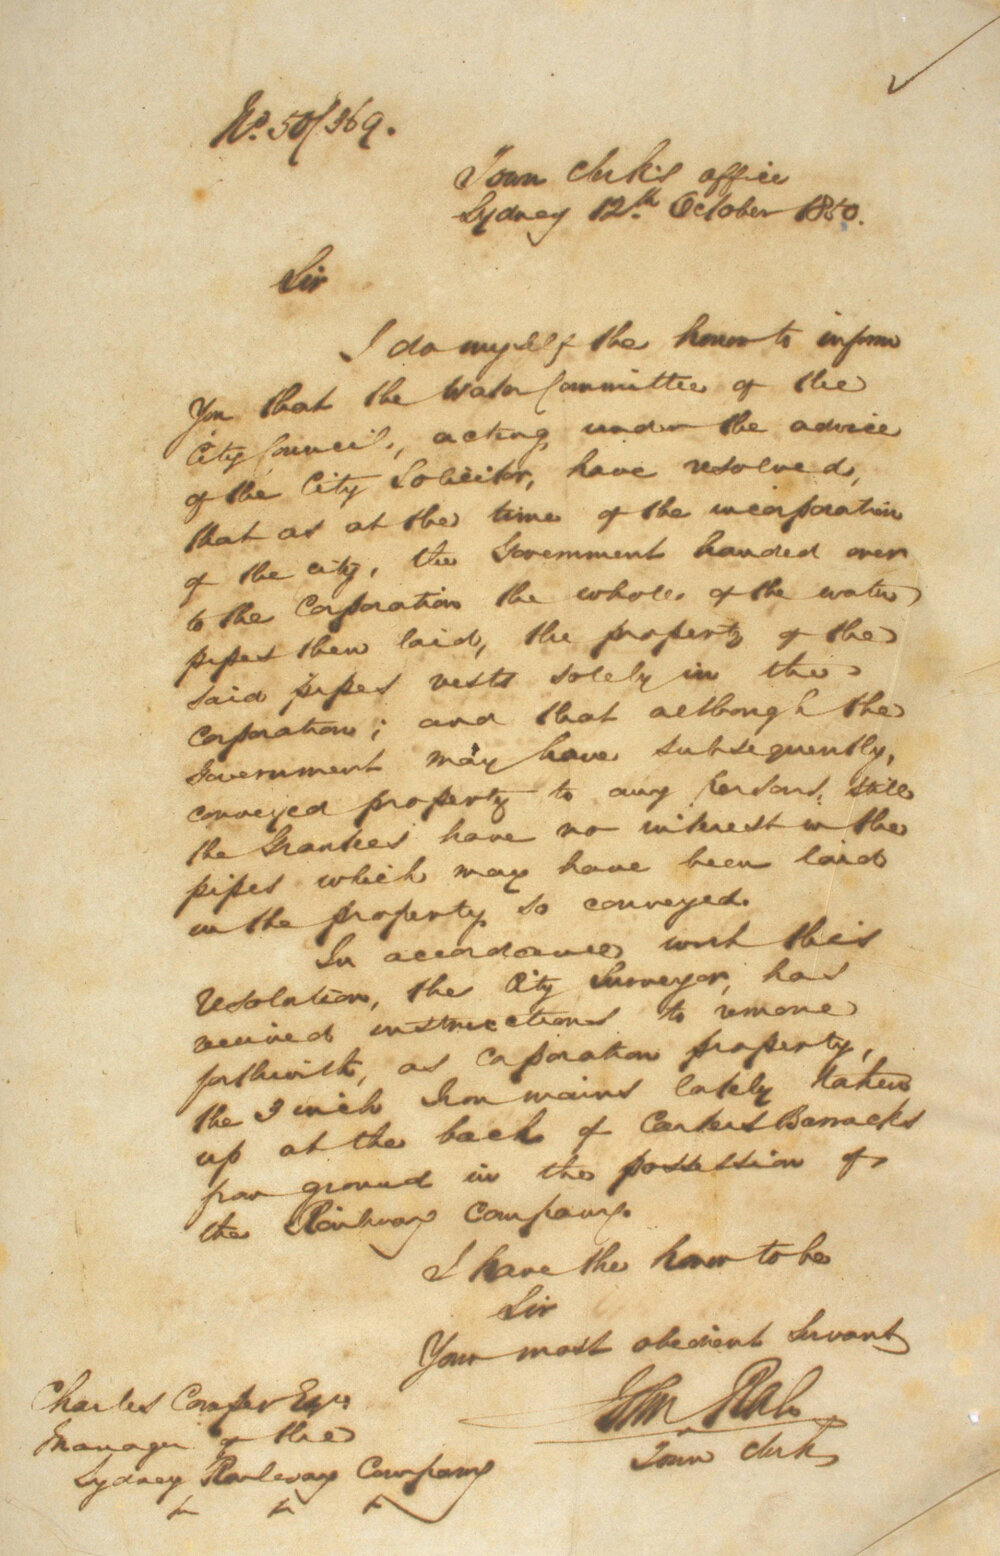 No. 50/369.
Town Clerk's office
Sydney 12th October 1850.
Sir
I do myself the honor to inform
You that the Water Committee of the
City Council, acting under the advice
of the City Solicitor, have resolved,
that as at the time of the incorporation
of the city, the Government handed over
to the Corporation the whole of the water
pipes then laid, the property of the
said pipes vests solely in the
Corporation; and that although the
Government may have subsequently,
conveyed property to any persons, still
the Grantees have no interest in the
pipes which may have been laid
in the property so conveyed.
In accordance with this
resolution, the City Surveyor, has
received instructions to remove
forthwith, as Corporation property,
the 3 inch Iron mains lately taken
up at the back of Carters Barracks
from ground in the possession of
the Railway Company.
I have the honor to be
Sir
Your most obedient Servant
Town Clerk
Charles Cowper Esqre
Manager of the
Sydney Railway Company